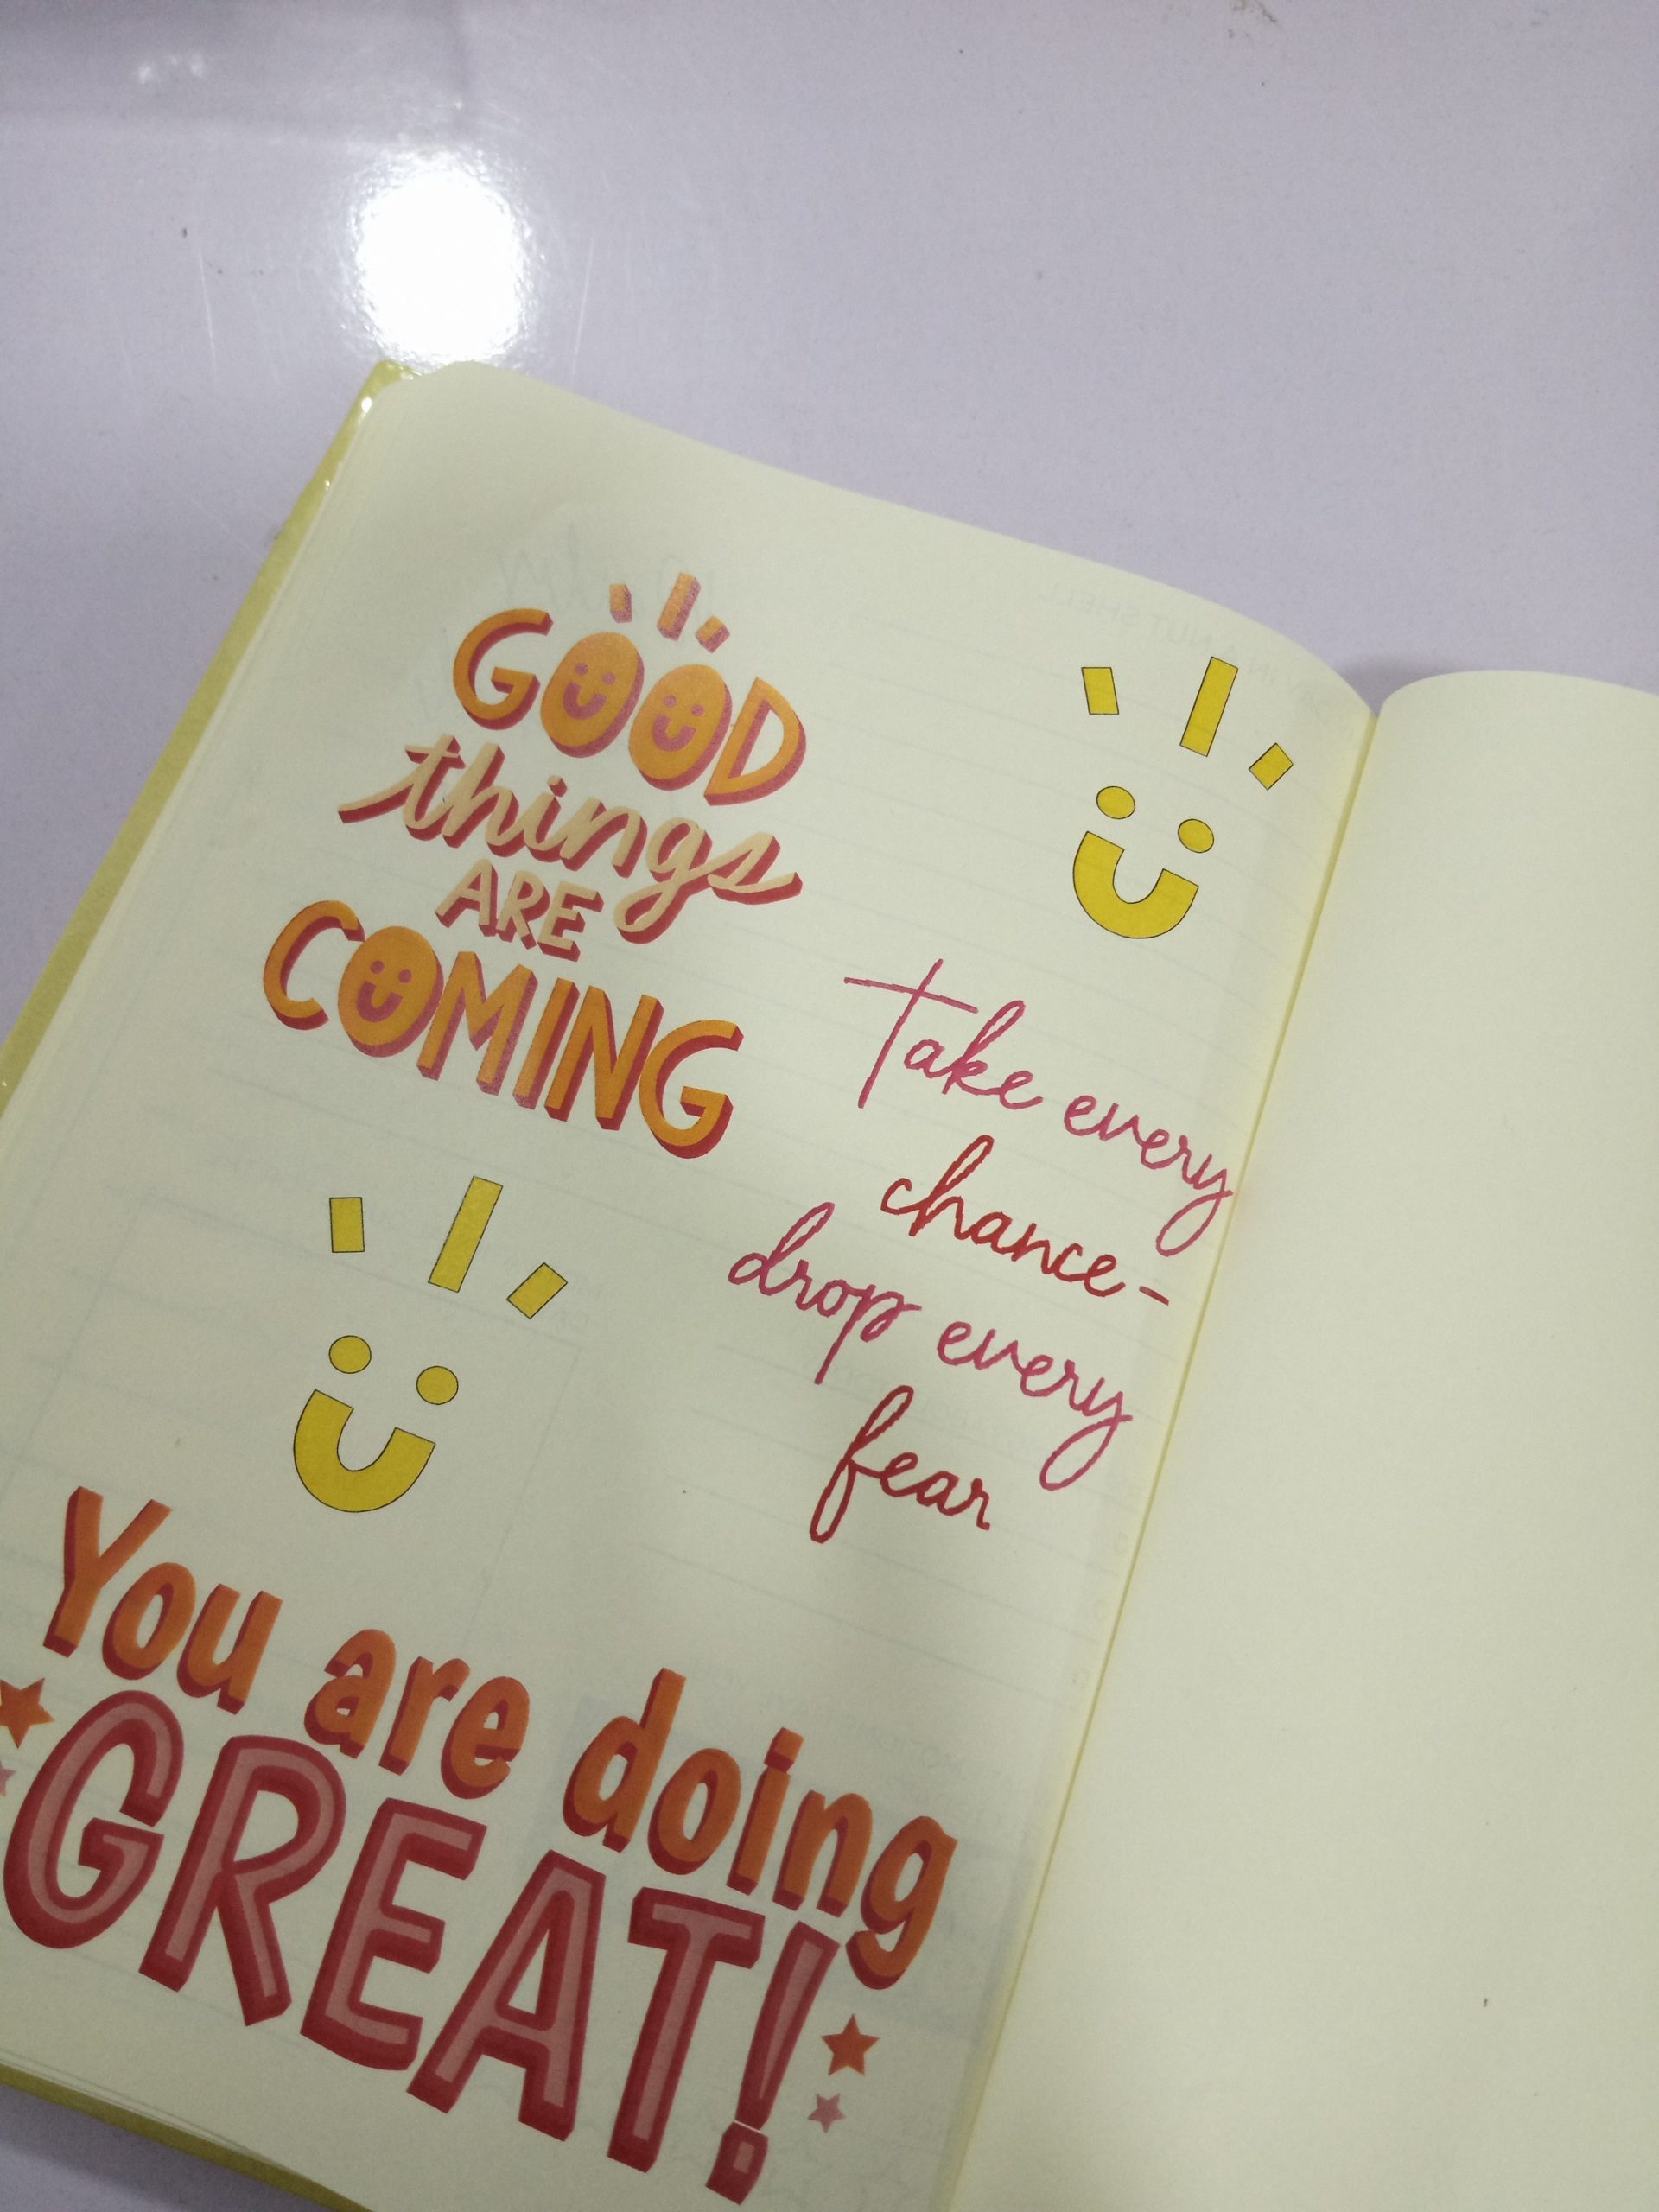 GOOD
things
ARE
COMING
Take every
chance-
drop every
fear
You are doing
GREAT!